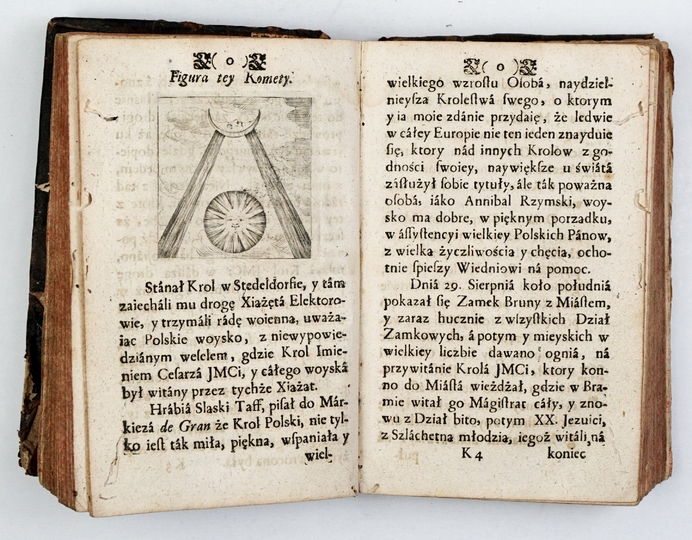 ( o )
Figura tey Komety.
Stánał Krol w Stedeldorfie, y tám
zaiecháli mu drogę Xiążętá Elektoro-
wie, y trzymáli rádę woienną, uważa-
iąc Polskie woysko, z niewypowie-
dziánym weselem, gdzie Krol Imie-
niem Cesarzá JMCi, y cáłego woyská
był witány przez tychże Xiażat.
Hrábiá Slaski Taff, pisał do Már-
kiezá de Gran że Krol Polski, nie tyl-
ko iest ták miła, piękna, wspaniáła y
wiel-
( o )
wielkiego wzrostu Osobá, naydziel-
nieysza Krolestwá swego, o ktorym
y ia moie zdánie przydaię, że ledwie
w cáłey Europie nie ten ieden znayduie
się, ktory nád innych Krolow z go-
dności swoiey, naywiększe u świátá
zásłużył sobie tytuły, ále ták poważna
osobá, iáko Annibal Rzymski, woy-
sko ma dobre, w pięknym porzadku,
w ássystencyi wielkiey Polskich Pánow,
z wielka życzliwościa y chęcia, ocho-
tnie spieszy Wiedniowi ná pomoc.
Dniá 29. Sierpniá koło południá
pokazał się Zamek Bruny z Miástem,
y zaraz hucznie z wszystkich Dział
Zamkowych, á potym y mieyskich w
wielkiey liczbie dawano ogniá, ná
przywitánie Krolá JMCi, ktory kon-
no do Miástá wieżdżał, gdzie w Bra-
mie witał go Mágistrat cáły, y zno-
wu z Dział bito, potym XX. Jezuici,
z Szláchetna młodzia, iegoż witáli, ná
K 4 koniec